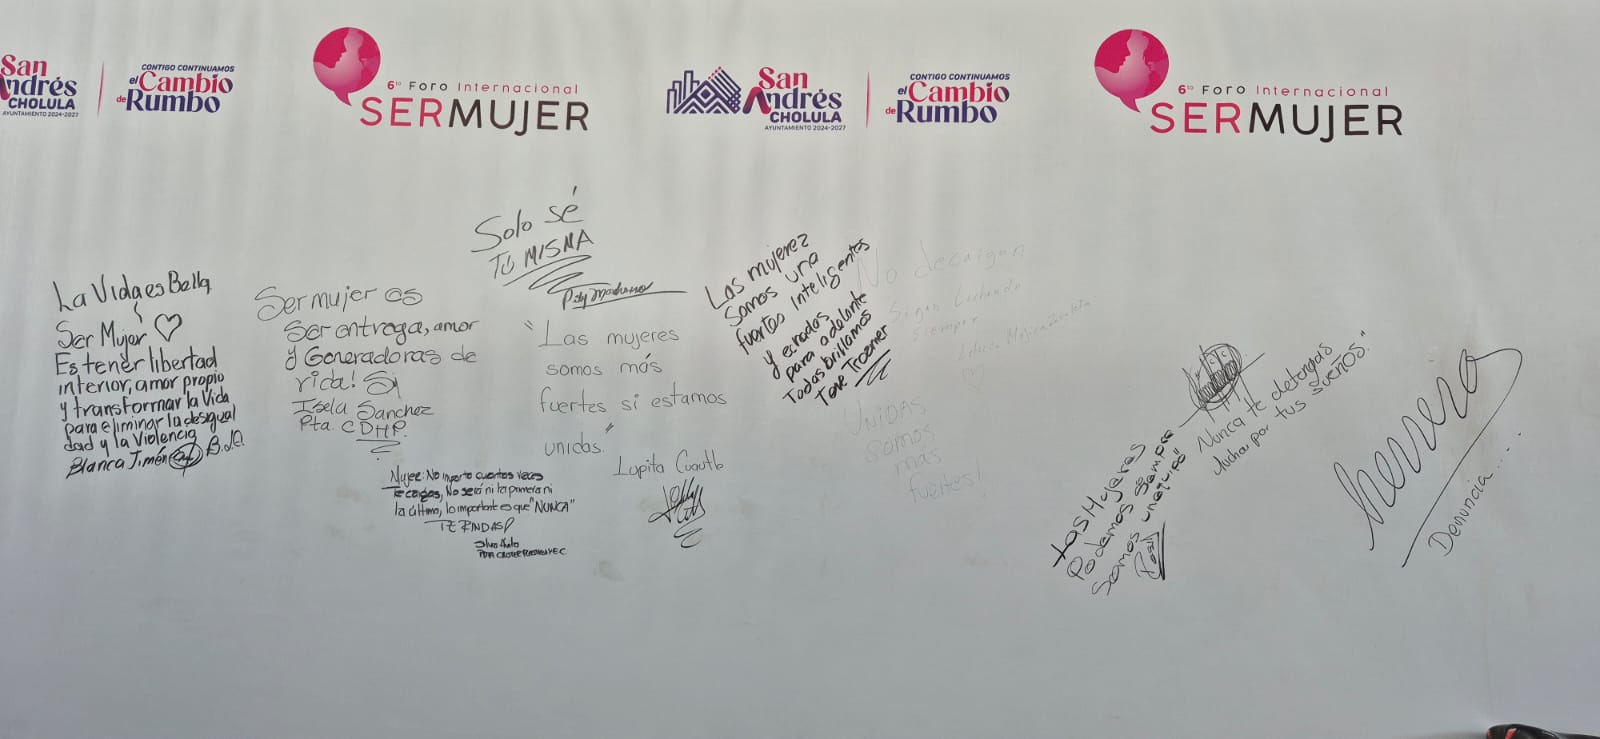 San
Andrés
CHOLULA
AYUNTAMIENTO 2024-2027
CONTIGO CONTINUAMOS
el Cambio
de Rumbo
6to Foro Internacional
SER MUJER
San
Andrés
CHOLULA
AYUNTAMIENTO 2024-2027
CONTIGO CONTINUAMOS
el Cambio
de Rumbo
6to Foro Internacional
SER MUJER
La Vida es Bella
Ser Mujer
Es tener libertad
interior, amor propio
y transformar la Vida
para eliminar la desigual
dad y la Violencia
Blanca Jiménez
Ser mujer es
Ser entrega, amor
y Generadoras de
vida!
Isela Sanchez
Pta. CDHP.
Solo sé
TÚ MISMA
"Las mujeres
somos más
fuertes si estamos
unidas."
Lupita Cuautle
Mujer: No importa cuantas veces
Te caigas, No será ni la primera ni
la última, lo importante es que "NUNCA"
TE RINDAS!
Las mujerez
Somos una
fuertes Inteligentes
y echadas
para adelante
Todas brillamos
No decaigan
Sigan Luchando
siempre
UNIDAS
somos
más
fuertes!
Las Mujeres
Podemos siempre
somos un equipo"
Nunca te detengas
luchar por tus sueños."
Denuncia....